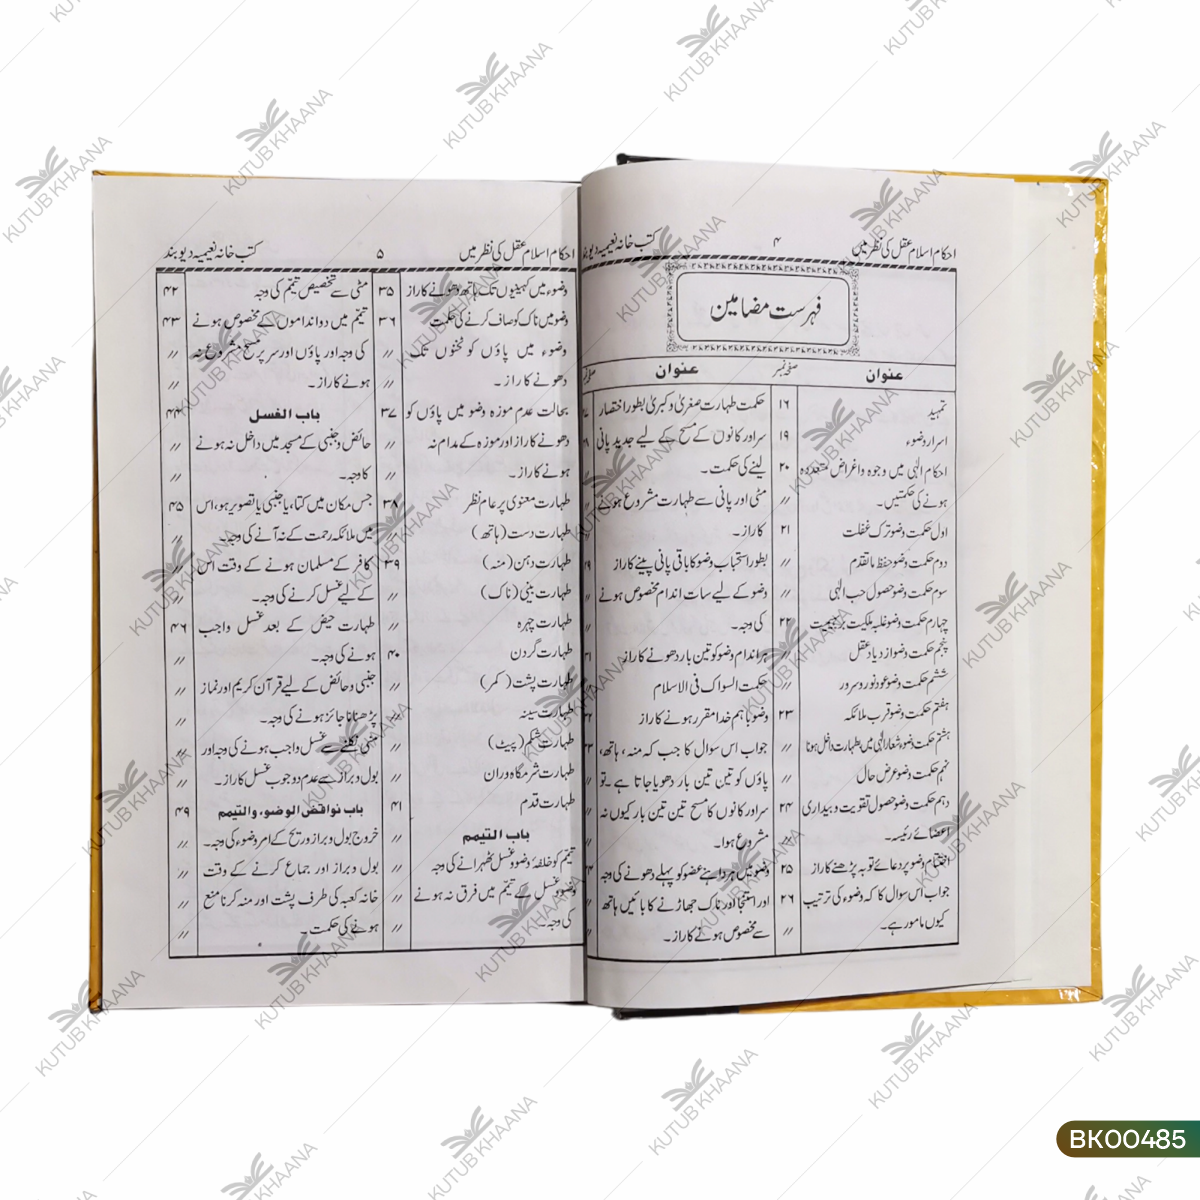 احکام اسلام عقل کی نظر میں ۴ کتب خانہ نعیمیہ دیوبند
فہرست مضامین
عنوان صفحہ نمبر عنوان
تمہید ۱۶
اسرار وضوء ۱۹
احکام الٰہی میں وجوہ واغراض متعددہ ۲۰
ہونے کی حکمتیں۔ 〃
اول حکمت وضو ترک غفلت ۲۱
دوم حکمت وضو حفظ ما تقدم 〃
سوم حکمت وضو حصول حب الٰہی 〃
چہارم حکمت وضو غلبہ ملکیت بر بہیمیت ۲۲
پنجم حکمت وضو ازدیاد عقل 〃
ششم حکمت وضو عود نور و سرور 〃
ہفتم حکمت وضو قرب ملائکہ ۲۳
ہشتم حکمت وضو شعار الٰہی میں بطہارت داخل ہونا 〃
نہم حکمت وضو عرض حال 〃
دہم حکمت وضو حصول تقویت و بیداری ۲۴
اعضائے رئیسہ۔ 〃
اختتام وضو پر دعائے توبہ پڑھنے کا راز ۲۵
جواب اس سوال کا کہ وضوء کی ترتیب ۲۶
کیوں مامور ہے۔ 〃
حکمت طہارت صغریٰ و کبریٰ بطور اختصار
سر اور کانوں کے مسح کے لیے جدید پانی
لینے کی حکمت۔
مٹی اور پانی سے طہارت مشروع ہونے
کا راز۔
بطور استحباب وضو کا باقی پانی پینے کا راز
وضو کے لیے سات اندام مخصوص ہونے
کی وجہ۔
ہر اندام وضو کو تین بار دھونے کا راز
حکمت السواک فی الاسلام
وضو باہم خدا مقرر ہونے کا راز
جواب اس سوال کا جب کہ منہ، ہاتھ،
پاؤں کو تین تین بار دھویا جاتا ہے۔ تو
سر اور کانوں کا مسح تین تین بار کیوں نہ
مشروع ہوا۔
وضو میں ہر داہنے عضو کو پہلے دھونے کی وجہ
اور استنجا اور ناک جھاڑنے کا بائیں ہاتھ
سے مخصوص ہونے کا راز۔
احکام اسلام عقل کی نظر میں ۵ کتب خانہ نعیمیہ دیوبند
وضوء میں کہنیوں تک ہاتھ دھونے کا راز ۳۵
وضو میں ناک کو صاف کرنے کی حکمت ۳۶
وضوء میں پاؤں کو ٹخنوں تک 〃
دھونے کا راز۔ 〃
بحالت عدم موزہ وضو میں پاؤں کو ۳۷
دھونے کا راز اور موزہ کے مدام نہ 〃
ہونے کا راز۔ 〃
طہارت معنوی پر عام نظر ۳۸
طہارت دست (ہاتھ) 〃
طہارت دہن (منہ) ۳۹
طہارت بینی (ناک) 〃
طہارت چہرہ 〃
طہارت گردن ۴۰
طہارت پشت (کمر) 〃
طہارت سینہ 〃
طہارت شکم (پیٹ) 〃
طہارت شرمگاہ وران 〃
طہارت قدم ۴۱
باب التیمم 〃
تیمم کو خلفۂ وضو و غسل ٹھہرانے کی وجہ 〃
وضو و غسل کے تیمم میں فرق نہ ہونے 〃
کی وجہ۔ 〃
مٹی سے تخصیص تیمم کی وجہ ۴۲
تیمم میں دو اندامو‌ں کے مخصوص ہونے ۴۳
کی وجہ اور پاؤں اور سر پر مسح مشروع نہ 〃
ہونے کا راز۔ 〃
باب الغسل ۴۴
حائض و جنبی کے مسجد میں داخل نہ ہونے 〃
کا وجہ۔ 〃
جس مکان میں کتا، یا جنبی یا تصویر ہو، اس ۴۵
میں ملائکہ رحمت کے نہ آنے کی وجہ۔ 〃
کافر کے مسلمان ہونے کے وقت اس 〃
کے لیے غسل کرنے کی وجہ۔ 〃
طہارت حیض کے بعد غسل واجب ۴۶
ہونے کی وجہ۔ 〃
جنبی و حائض کے لیے قرآن کریم اور نماز 〃
پڑھنا ناجائز ہونے کی وجہ۔ 〃
منی نکلنے سے غسل واجب ہونے کی وجہ اور 〃
بول و براز سے عدم وجوب غسل کا راز۔ 〃
باب نواقض الوضوء والتیمم ۴۹
خروج بول و براز و ریح کے امر وضوء کی وجہ۔ 〃
بول و براز اور جماع کرنے کے وقت 〃
خانہ کعبہ کی طرف پشت اور منہ کرنا منع 〃
ہونے کی حکمت۔ 〃
KUTUB KHAANA
BK00485